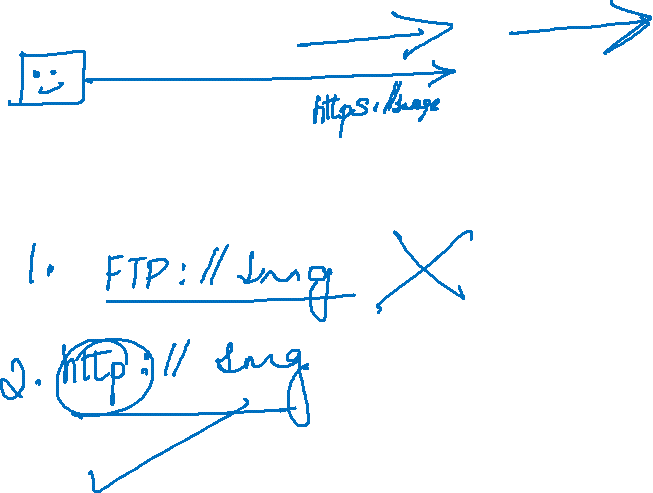 https://Image
1. FTP://Img
2. http://Img